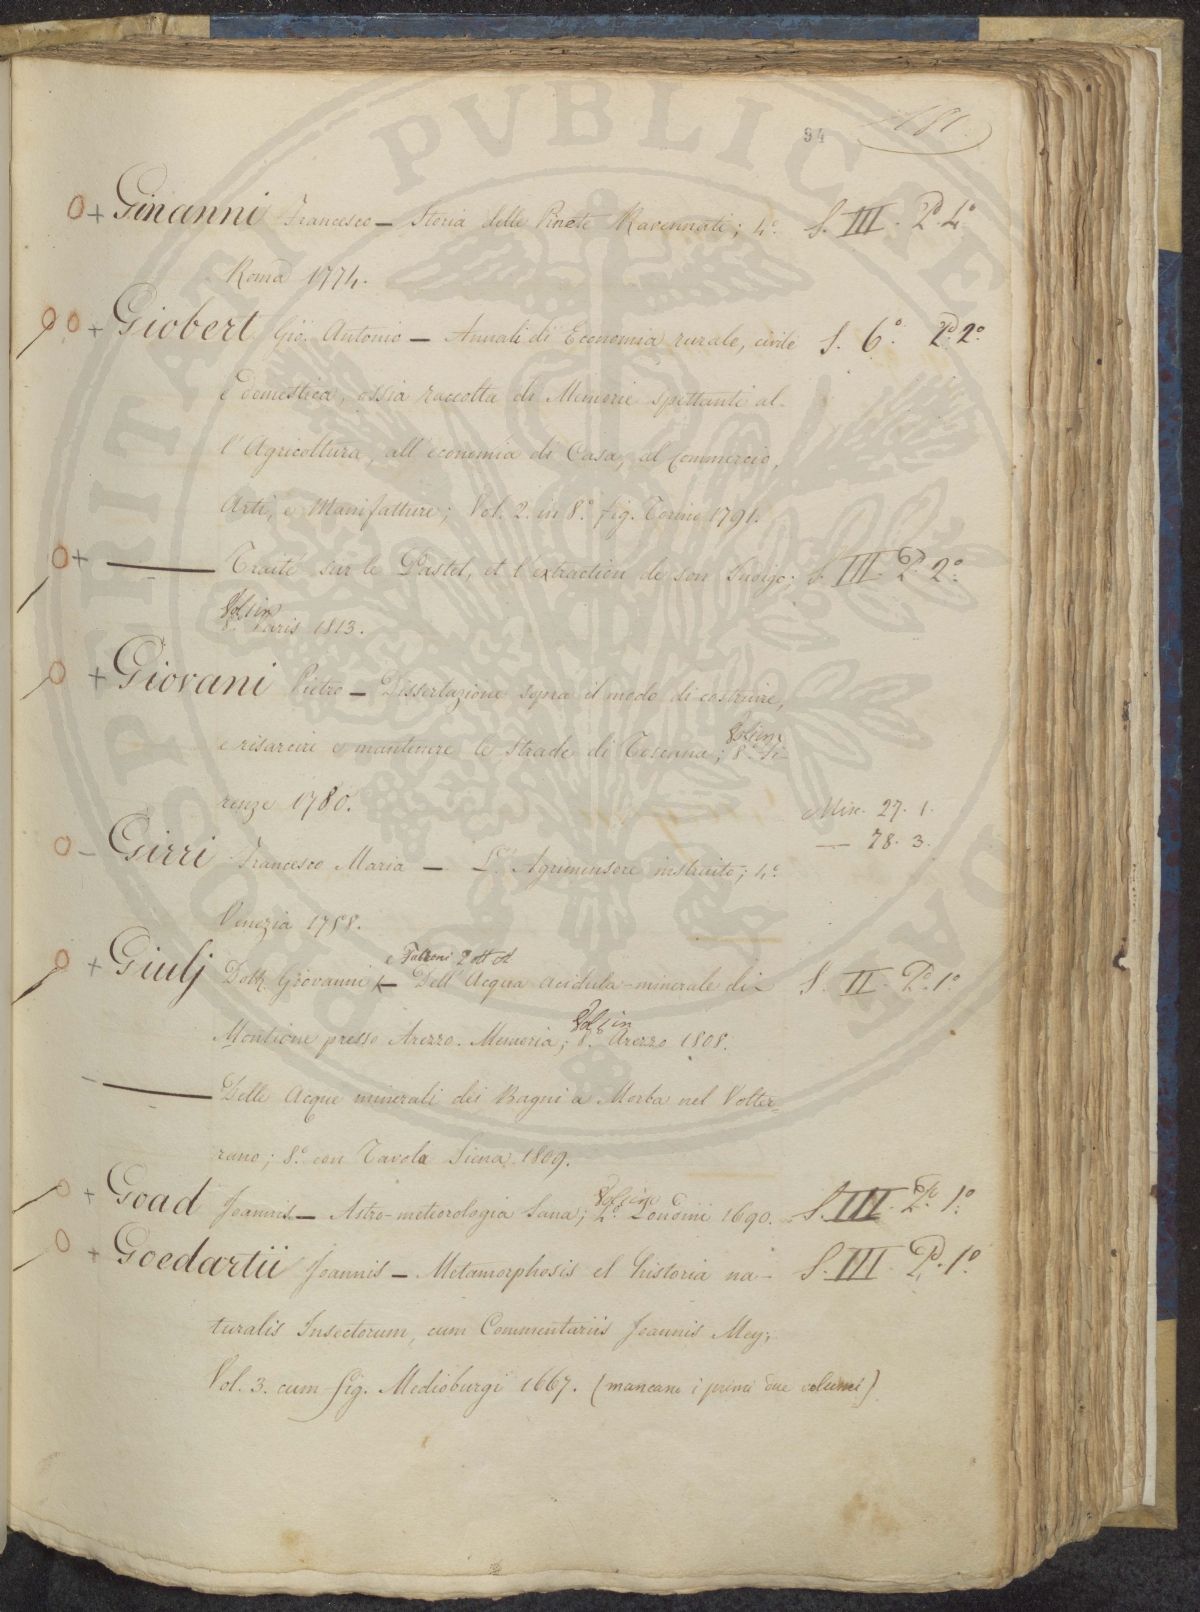 94
181.
O + Ginanni Francesco — Storia delle Pinete Ravennati; 4.° S. III. P.° 4°
Roma 1774.
O O + Giobert Gio. Antonio — Annali di Economia rurale, civile S. 6° P.° 2°
e domestica, ossia raccolta di Memorie spettanti al-
l'Agricoltura, all'economia di Casa, al Commercio,
Arti, e Manifatture; Vol. 2. in 8.° fig. Torino 1791.
O + —— Traité sur le Pastel, et l'extraction de son Indigo; S. III. P.° 2°
Vol. 1 in
8.° Paris 1813.
O + Giovani Pietro — Dissertazione sopra il modo di costruire,
e risarcire e mantenere le strade di Toscana; Vol. 1 in 8.° Fi-
renze 1780.
Misc. 27. 1.
— 78. 3.
O – Girri Francesco Maria — L'Agrimensore instruito; 4.°
Venezia 1758.
O + Giulj Dott. Giovanni e Fabroni Dott. A — Dell'Acqua acidula-minerale di S. II. P.° 1°
Montione presso Arezzo. Memoria; Vol. 1 in 8.° Arezzo 1808.
– —— Delle Acque minerali dei Bagni a Morba nel Volter=
rano; 8.° con Tavola Siena 1809.
O + Goad Joannis — Astro-meteorologia Sana; Vol. 1 in 4.° Londini 1690. S. III. P.° 1°
O + Goedartii Joannis — Metamorphosis et historia na- S. III. P.° 1°
turalis Insectorum, cum Commentariis Joannis Mey;
Vol. 3. cum fig. Medioburgi 1667. (mancano i primi due volumi)
PROSPERITATI PUBLICAE AUGENDAE